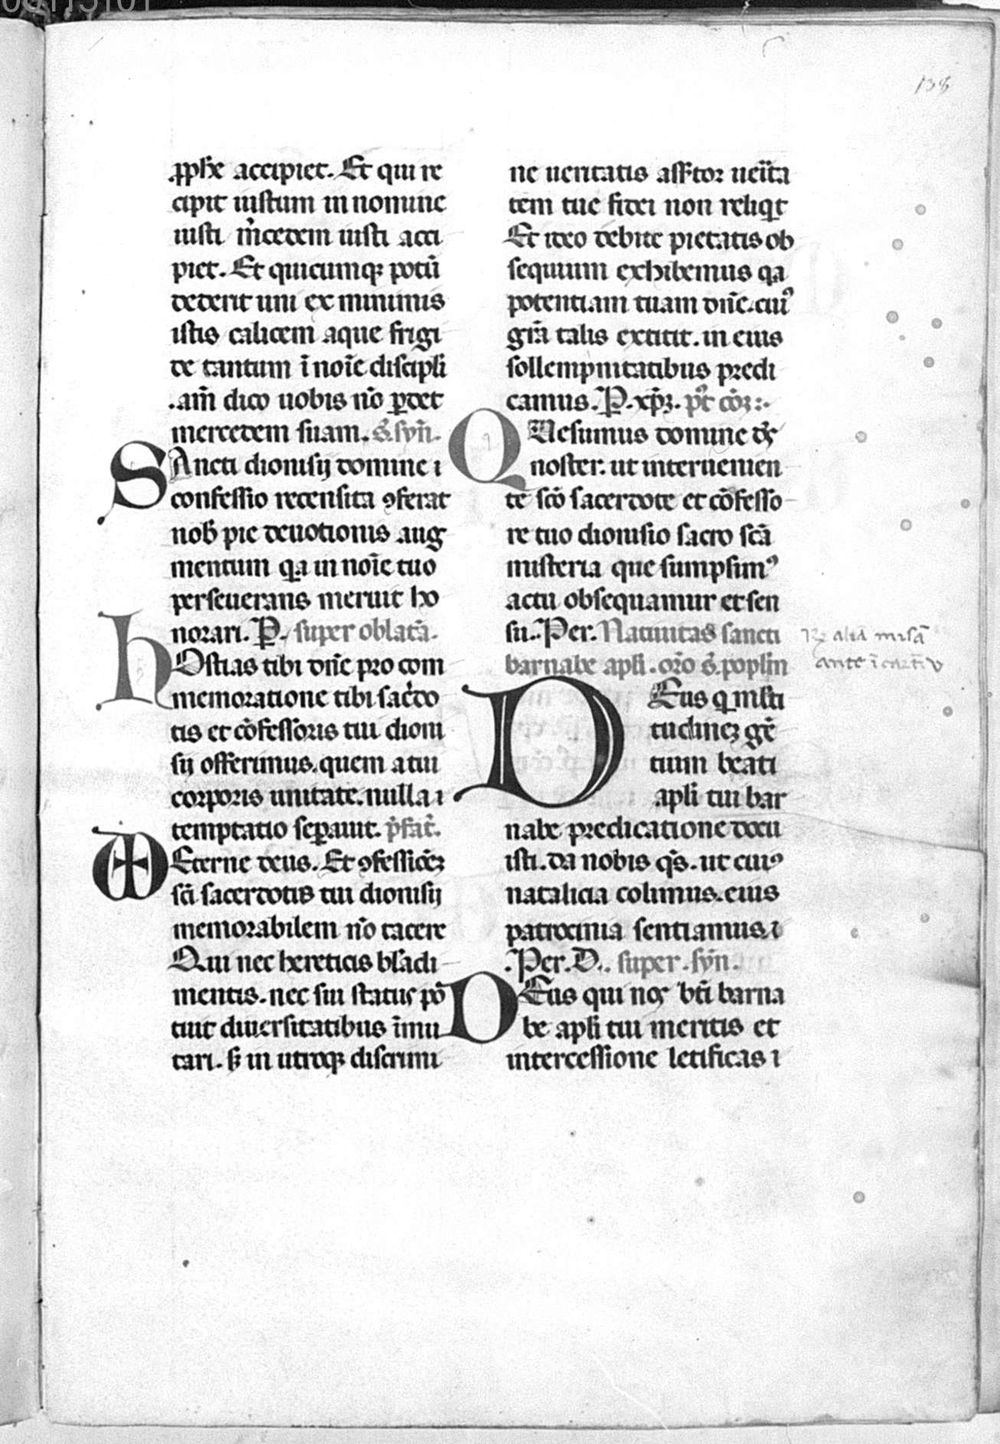 138
ꝓph̄e accipiet. Et qui re
cipit iustum in nomine
iusti m̄cedem iusti acci
piet. Et quicumqꝫ potū
dederit uni ex minimis
istis calicem aque frigi
de tantum ī noīe discipli
.am̄ dico uobis nō ꝑdet
mercedem suam. S̄. syn̄.
SAncti dionisij domine ı
confessio recensita ꝯferat
nob̄ pie deuotionis aug
mentum qͣ in noīe tuo
perseuerans meruit ho
norari. P. super oblatā.
hOstias tibi dn̄e pro com
memoratione tibi sac̄do
tis et cōfessoris tui dioni
sij offerimus. quem a tui
corporis unitate. nulla ı
temptatio sep̄auit. p̄fat̄.
Eterne deus. Et ꝯfessiōꝫ
sc̄i sacerdotis tui dionisij
memorabilem nō tacere
Qui nec hereticis blādi
mentis. nec sui status pō
tuit diuersitatibus īmu
tari. s̄ in utroqꝫ discrimi
ne ueritatis assʼtor uei̅ta
tem tue fidei non reliqͥt
Et ideo debite pietatis ob
sequium exhibemus qͣ
potentiam tuam dn̄e. cuiꝰ
gr̄a talis extitit. in eius
sollempnitatibus predi
camus. P. xp̄ꝫ. pꝰt cōꝫ:.
QUesumus domine ds̄
noster. ut interuenien
te sc̄o sacerdote et cōfesso
re tuo dionisio sacro sc̄ā
misteria que sumpsimꝰ
actu obsequamur et sen
su. Per. Natiuitas sancti
barnabe apl̄i. or̄o s̄. popl̄m
DEus qͥ multi
tudineꝫ gē
tium beati
apl̄i tui bar
nabe predicatione docu
isti. da nobis qs̄. ut cuiꝰ
natalicia colimus. eius
patrocinia sentiamus. ı
.Per. D.. super. syn̄.
DEus qui nos bt̄i barna
be apl̄i tui meritis et
intercessione letificas ı
alia misā
ante ī